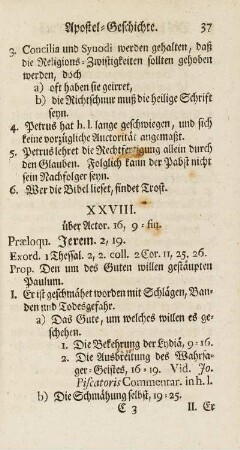 Apostel-Geschichte. 37
3. Concilia und Synodi werden gehalten, daß
die Religions-Zwistigkeiten sollten gehoben
werden, doch
a) oft haben sie geirret,
b) die Richtschnur muß die heilige Schrift
seyn.
4. Petrus hat h. l. lange geschwiegen, und sich
keine vorzügliche Auctorität angemaßt.
5. Petrus lehret die Rechtfertigung allein durch
den Glauben. Folglich kann der Pabst nicht
sein Nachfolger seyn.
6. Wer die Bibel lieset, findet Trost.
XXVIII.
über Actor. 16, 9 - fin.
Præloqu. Jerem. 2, 19.
Exord. 1 Thessal. 2, 2. coll. 2 Cor. 11, 25, 26.
Prop. Den um des Guten willen gestäupten
Paulum.
I. Er ist geschmähet worden mit Schlägen, Ban-
den und Todesgefahr.
a) Das Gute, um welches willen es ge-
schehen.
1. Die Bekehrung der Lydiä, 9-16.
2. Die Austreibung des Wahrsa-
ger-Geistes, 16-19. Vid. Jo.
Piscatoris Commentar. in h. l.
b) Die Schmähung selbst, 19-25.
C 3 II. Er